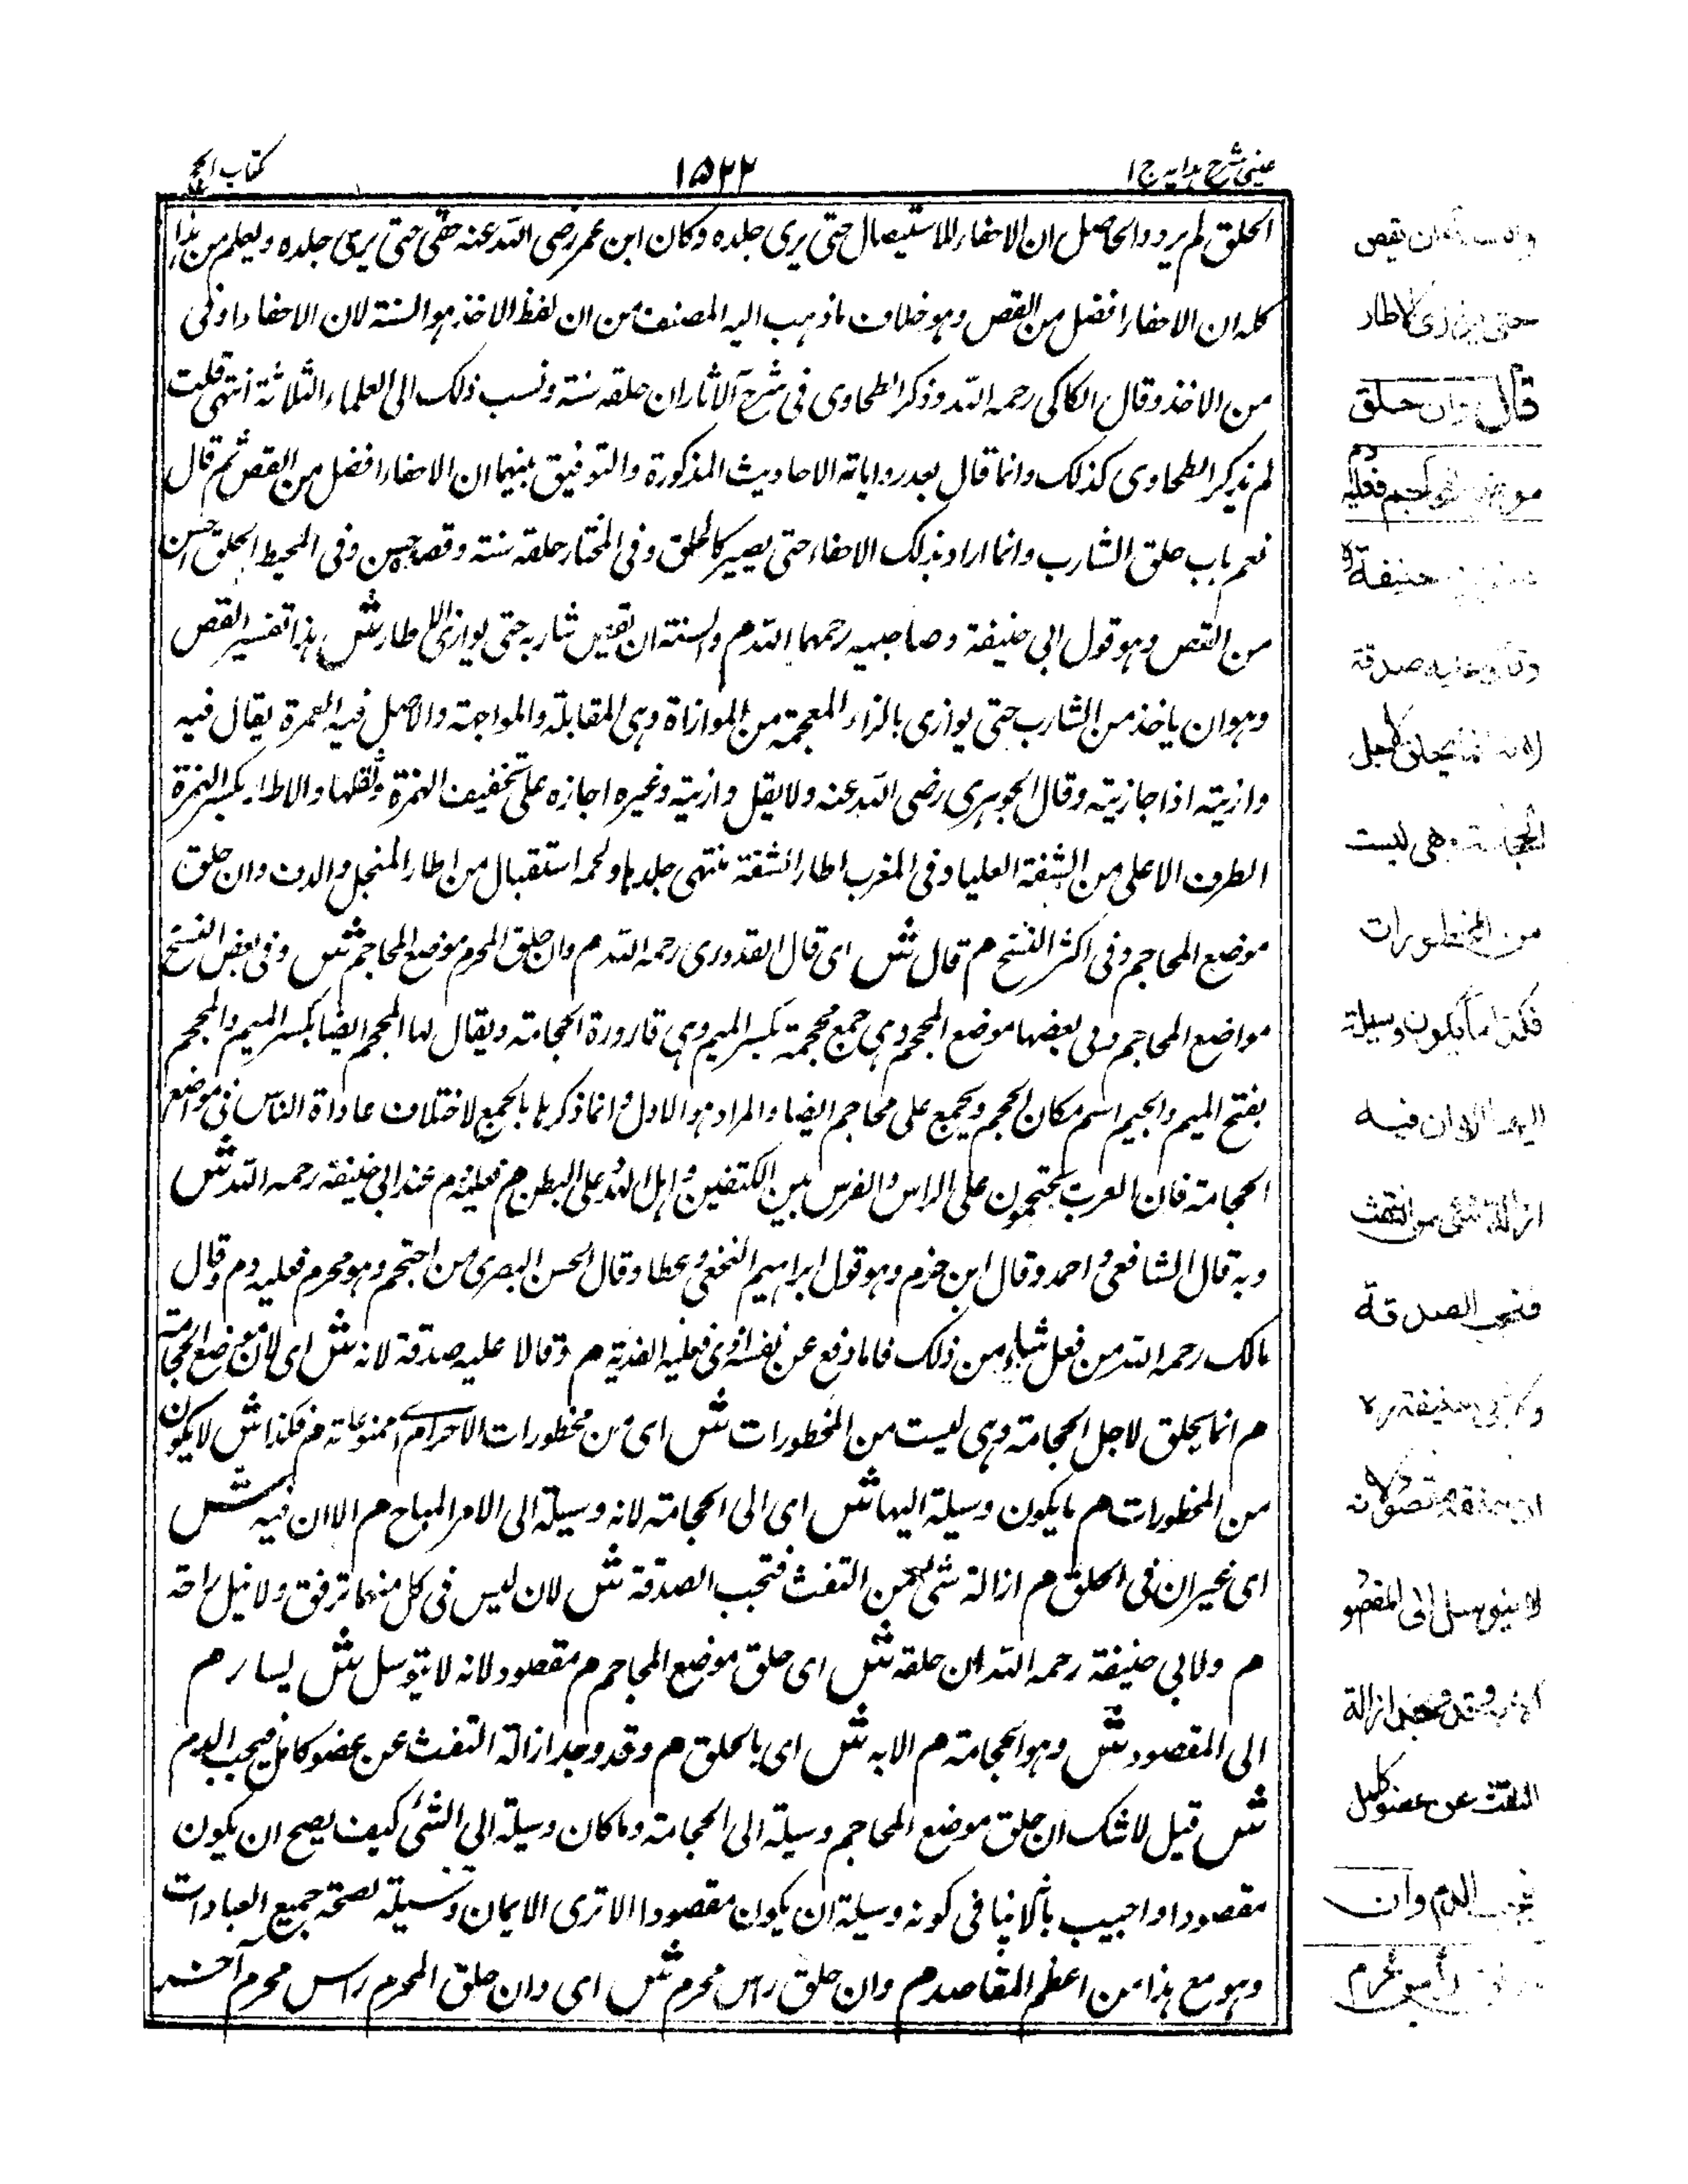 عینی شرح ہدایہ ج ۱
۱۵۲۲
کتاب الحج
الحلق لم یرد والحاصل ان الاحفاء للاستیصال حتی یری جلدہ وکان ابن عمر رضی اللہ عنہ حفی حتی یری جلدہ ویعلم من ہذا
کلہ ان الاحفاء افضل من القص وہو خلاف ما ذہب الیہ المصنف من ان لفظ الاخذ ہو السنۃ لان الاحفاء اوفی
من الاخذ وقال الکاکی رحمہ اللہ وذکر الطحاوی فی شرح الآثار ان حلقہ سنۃ ونسب ذلک الی العلماء الثلاثۃ انتہی قلت
لم یذکر الطحاوی کذلک وانما قال بعد روایاتہ الاحادیث المذکورۃ والتوفیق بینہما ان الاحفاء افضل من القص ثم قال
نعم باب حلق الشارب وانما اراد بذلک الاحفاء حتی یصیر کالحلق وفی المختار حلقہ سنۃ وقصہ حسن وفی المحیط الحلق احسن
من القص وہو قول ابی حنیفۃ وصاحبیہ رحمہما اللہ م والسنۃ ان یقص شاربہ حتی یوازی الاطار ش ہذا تفسیر القص
وہو ان یاخذ من الشارب حتی یوازی بالزاء المعجمۃ من الموازاۃ وہی المقابلۃ والمواجہۃ والاصل فیہ الہمزۃ یقال فیہ
وازیتہ اذا حازیتہ وقال الجوہری رضی اللہ عنہ ولا یقل وازیتہ وغیرہ اجازہ علی تخفیف الہمزۃ وثقلہا والاطار بکسر الہمزۃ
الطرف الاعلی من الشفۃ العلیا وفی المغرب اطار الشفۃ منتہی جلدہا ولحمہ استقبال من اطار المنجل والدف وان حلق
موضع المحاجم وفی اکثر النسخ م قال ش ای قال القدوری رحمہ اللہ م وان حلق المحرم موضع المحاجم ش وفی بعض النسخ
مواضع المحاجم وفی بعضہا موضع المحجم وہی جمع محجمۃ بکسر المیم وہی قارورۃ الحجامۃ ویقال لہا المحجم ایضا بکسر المیم والمحجم
بفتح المیم والجیم اسم مکان الحجم ویجمع علی محاجم ایضا والمراد ہو الاول وانما ذکرہا بالجمع لاختلاف عاداۃ الناس فی مواضع
الحجامۃ فان العرب یحتجمون علی الراس والفرس بین الکتفین واہل الہند علی البطن م فعلیہ دم عند ابی حنیفۃ رحمہ اللہ ش
وبہ قال الشافعی واحمد وقال ابن حزم وہو قول ابراہیم النخعی وعطا وقال الحسن البصری من احتجم وہو محرم فعلیہ دم وقال
مالک رحمہ اللہ من فعل شیاء من ذلک فاماذ فع عن نفسہ اذی فعلیہ الفدیۃ م وقالا علیہ صدقۃ لانہ ش ای لان موضع الحجامۃ
م انما یحلق لاجل الحجامۃ وہی لیست من المحظورات ش ای من محظورات الاحرام ای ممنوعاتہ م فکذا ش لا یکون
من المحظورات م ما یکون وسیلۃ الیہا ش ای الی الحجامۃ لانہ وسیلۃ الی الامر المباح م الا ان فیہ ش
ای غیر ان فی الحلق م ازالۃ شئ من التفث فتجب الصدقۃ ش لان لیس فی کل منہما ترفق ولا نیل راحۃ
م ولابی حنیفۃ رحمہ اللہ ان حلقہ ش ای حلق موضع المحاجم م مقصود لانہ لا یتوسل ش یسار م
الی المقصود ش وہو الحجامۃ م الا بہ ش ای بالحلق م وقد وجد ازالۃ التفث عن عضو کامل فیجب الدم
ش قیل لا شک ان حلق موضع المحاجم وسیلۃ الی الحجامۃ وما کان وسیلۃ الی الشئ کیف یصح ان یکون
مقصودا واجیب بانہ لا ینافی کونہ وسیلۃ ان یکون مقصودا الا تری الایمان وسیلۃ لصحۃ جمیع العبادات
وہو مع ہذا من اعظم المقاصد م وان حلق راس محرم ش ای وان حلق المحرم راس محرم آخر
ان یقص
حتی یوازی الاطار
قال وان حلق
موضع المحاجم فعلیہ دم
حنیفۃ رہ
وقالا علیہ صدقۃ
لانہ انما یحلق لاجل
الحجامۃ وهی لیست
من المحظورات
فکذا ما یکون وسیلۃ
الیها الا ان فیه
ازالۃ شئ من التفث
فتجب الصدقۃ
ولابی حنیفۃ رہ
ان حلقہ مقصود لانه
لا یتوسل الی المقصود
الا بہ وقد وجد ازالۃ
التفث عن عضو کامل
فیجب الدم وان
حلق راس محرم